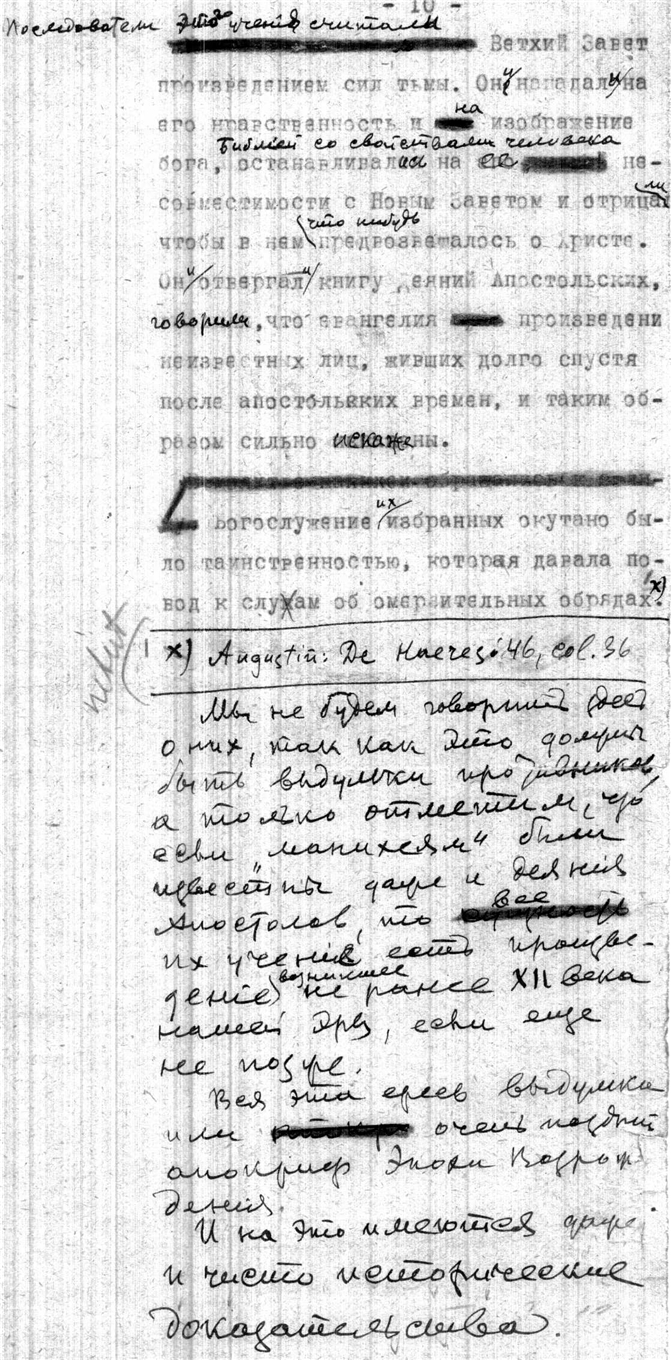 - 10 -
Последователи этого учения считали
Ветхий Завет
произведением сил тьмы. Они нападали на
его нравственность и на изображение
Библией со свойствами человека
бога, останавливались на ее не-
совместимости с Новым Заветом и отрицали
что нибудь
чтобы в нем предвозвещалось о Христе.
Они отвергали книгу Деяний Апостольских,
говорили, что евангелия произведени
неизвестных лиц, живших долго спустя
после апостольских времен, и таким об-
разом сильно искажены.
Богослужение их избранных окутано бы-
ло таинственностью, которая давала по-
вод к слухам об омерзительных обрядах. х)
х) Augustin: De Haeres. 46, col. 36
Мы не будем говорить здесь
о них, так как это должны
быть выдумки противников,
а только отметим, что
если „манихеям“ были
известны даже и деяния
Апостолов, то все
их учение есть произве-
дение возникшее не ранее XII века
нашей эры, если еще
не позже.
Вся эта ересь выдумка
или очень поздний
апокриф Эпохи Возрож-
дения.
И на это имеются даже
и чисто исторические
доказательства.